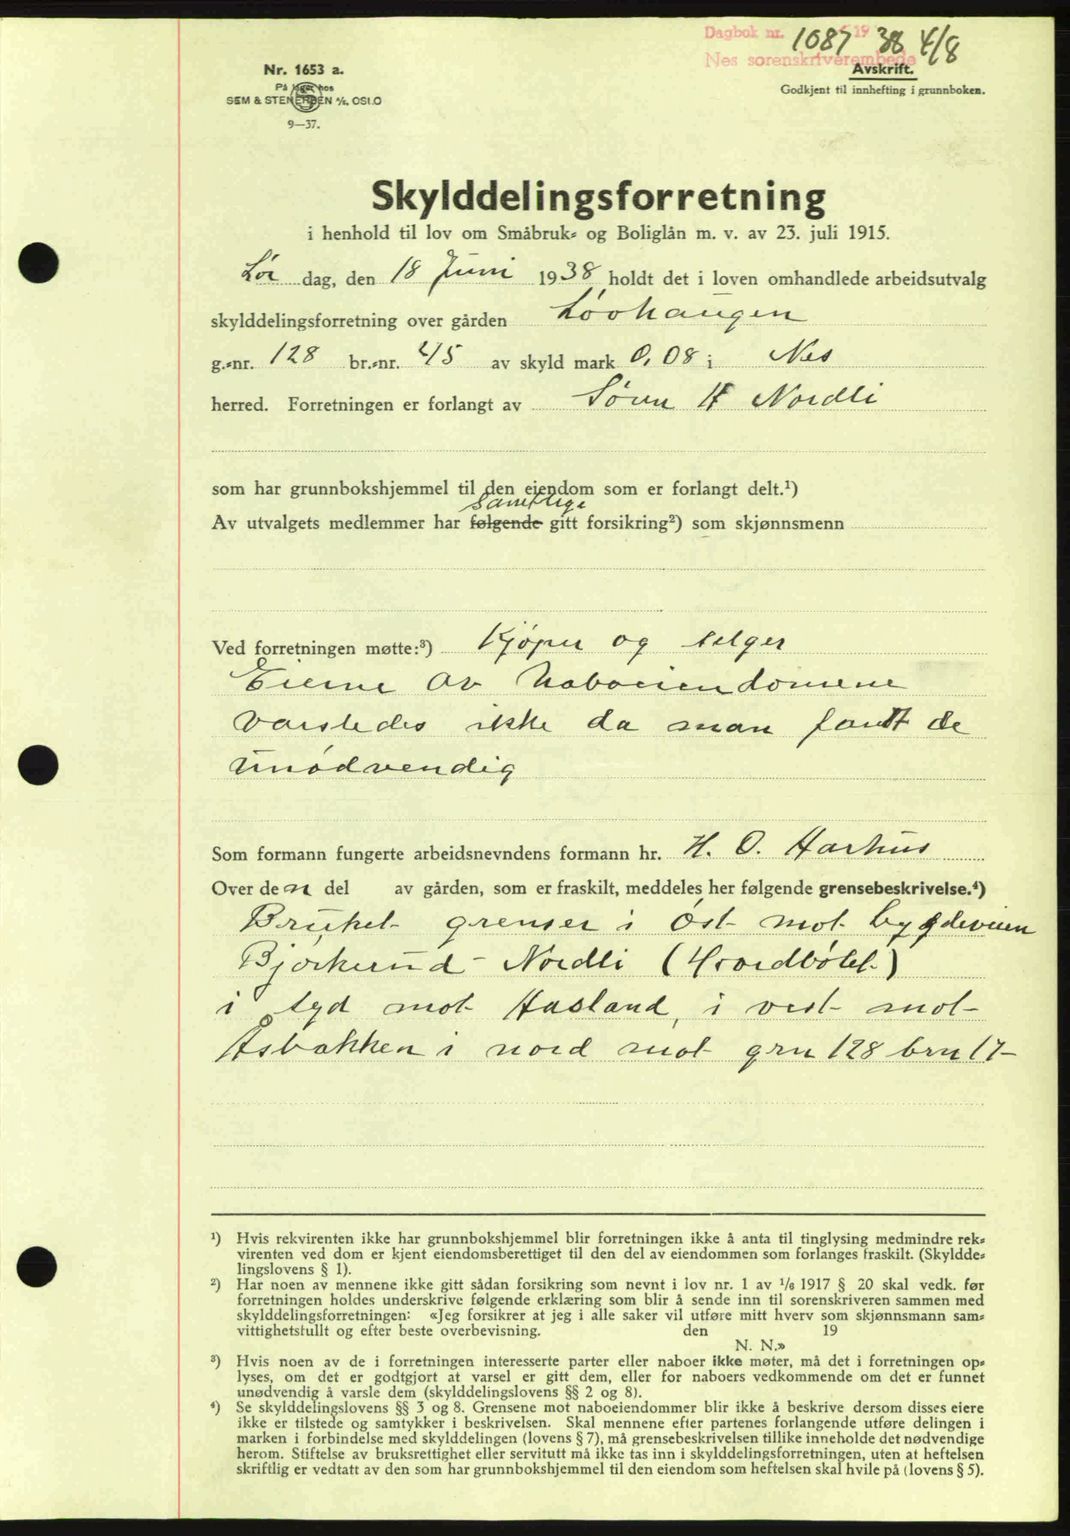 Dagbok nr. 1087 1938 4/8
Nes sorenskriverembede
Nr. 1653 a.
På lager hos
SEM & STENERSEN A/S, OSLO
9—37.
Avskrift.
Godkjent til innhefting i grunnboken.
Skylddelingsforretning
i henhold til lov om Småbruk- og Boliglån m. v. av 23. juli 1915.
Lør dag, den 18 Juni 1938 holdt det i loven omhandlede arbeidsutvalg
skylddelingsforretning over gården Løvhaugen
g.-nr. 128 br.-nr. 45 av skyld mark 0,08 i Nes
herred. Forretningen er forlangt av Søren H Nordli
som har grunnbokshjemmel til den eiendom som er forlangt delt.¹)
samtlige
Av utvalgets medlemmer har følgende gitt forsikring²) som skjønnsmenn
Ved forretningen møtte:³) Kjøper og selger
Eierne av naboeiendomene
varsledes ikke da man fant de
unødvendig
Som formann fungerte arbeidsnevndens formann hr. H. O. Aarhus
Over den del av gården, som er fraskilt, meddeles her følgende grensebeskrivelse.⁴)
Bruket grenser i Øst mot bygdeveien
Bjørkerud - Nordli
i syd mot Hasland, i vest mot
Åsbakken i nord mot grn 128 brn 17-
¹) Hvis rekvirenten ikke har grunnbokshjemmel blir forretningen ikke å anta til tinglysing medmindre rek-
virenten ved dom er kjent eiendomsberettiget til den del av eiendommen som forlanges fraskilt. (Skyldde-
lingslovens § 1).
²) Har noen av mennene ikke gitt sådan forsikring som nevnt i lov nr. 1 av 1/6 1917 § 20 skal vedk. før
forretningen holdes underskrive følgende erklæring som blir å sende inn til sorenskriveren sammen med
skylddelingsforretningen: «Jeg forsikrer at jeg i alle saker vil utføre mitt hverv som skjønnsmann sam-
vittighetsfullt og efter beste overbevisning. den 19
N. N.»
³) Hvis noen av de i forretningen interesserte parter eller naboer ikke møter, må det i forretningen op-
lyses, om det er godtgjort at varsel er gitt dem, eller for naboers vedkommende om det er funnet
unødvendig å varsle dem (skylddelingslovens §§ 2 og 8).
⁴) Se skylddelingslovens §§ 3 og 8. Grensene mot naboeiendommer blir ikke å beskrive dersom disses eiere
ikke er tilstede og samtykker i beskrivelsen. Skal mennene efter partenes forlangende utføre delingen i
marken i forbindelse med skylddelingen (lovens § 7), må grensebeskrivelsen tillike inneholde det nødvendige
herom. Stiftelse av bruksrettighet eller servitutt må ikke tas inn i skylddelingsforretningen, uten at heftelsen
skriftlig er vedtatt av den som har grunnbokshjemmel til den eiendom som heftelsen skal hvile på (lovens § 5).